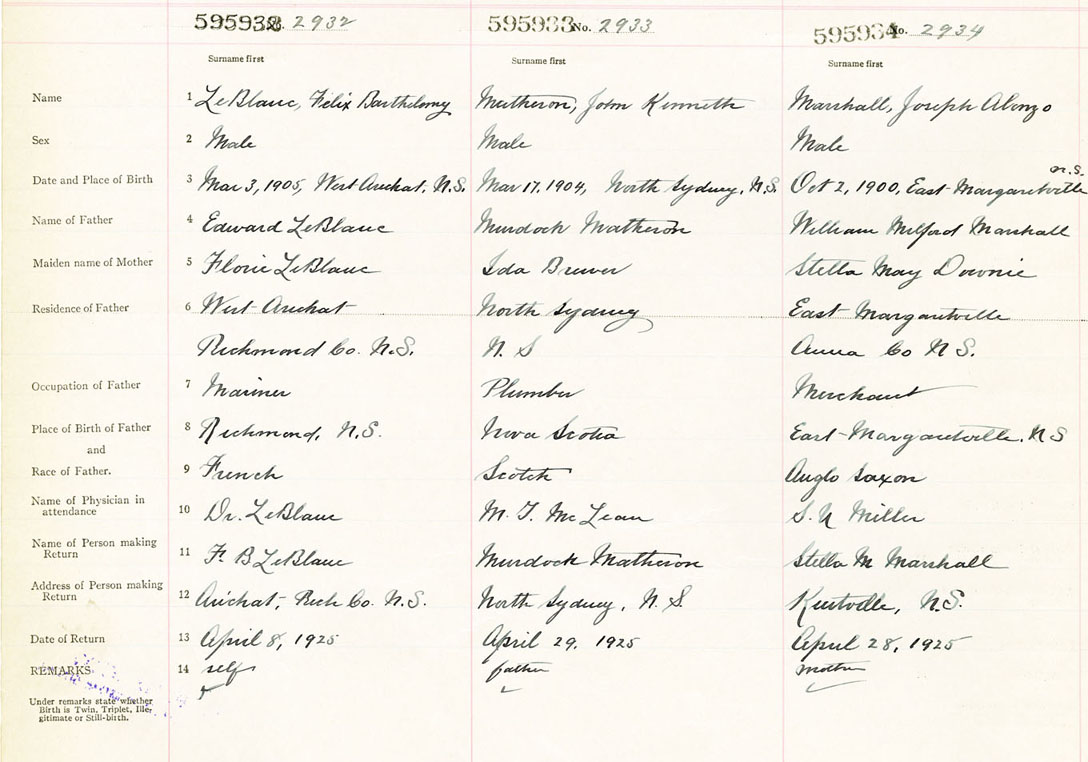 595932 No. 2932 595933 No. 2933 595934 No. 2934
Surname first Surname first Surname first
Name 1 LeBlanc, Felix Barthelomy Matheson, John Kenneth Marshall, Joseph Alonzo
Sex 2 Male Male Male
N.S.
Date and Place of Birth 3 Mar 3, 1905, West Arichat, N.S. Mar 17, 1904, North Sydney, N.S. Oct 2, 1900, East Margaretville
Name of Father 4 Edward LeBlanc Murdock Matheson William Milford Marshall
Maiden name of Mother 5 Florie LeBlanc Ida Brewer Stella May Downie
Residence of Father 6 West Arichat North Sydney East Margaretville
Richmond Co. N.S. N. S Anna Co N S.
Occupation of Father 7 Mariner Plumber Merchant
Place of Birth of Father 8 Richmond, N.S. Nova Scotia East Margaretville. N S
and
Race of Father. 9 French Scotch Anglo Saxon
Name of Physician in
attendance 10 Dr. LeBlanc M. T. McLean S. N Miller
Name of Person making
Return 11 F. B LeBlanc Murdock Matheson Stella M Marshall
Address of Person making
Return 12 Arichat, Rich Co. N.S. North Sydney, N. S Kentville, N.S.
Date of Return 13 April 8, 1925 April 29, 1925 April 28, 1925
REMARKS 14 self father mother
Under remarks state whether
Birth is Twin, Triplet, Ille-
gitimate or Still-birth.